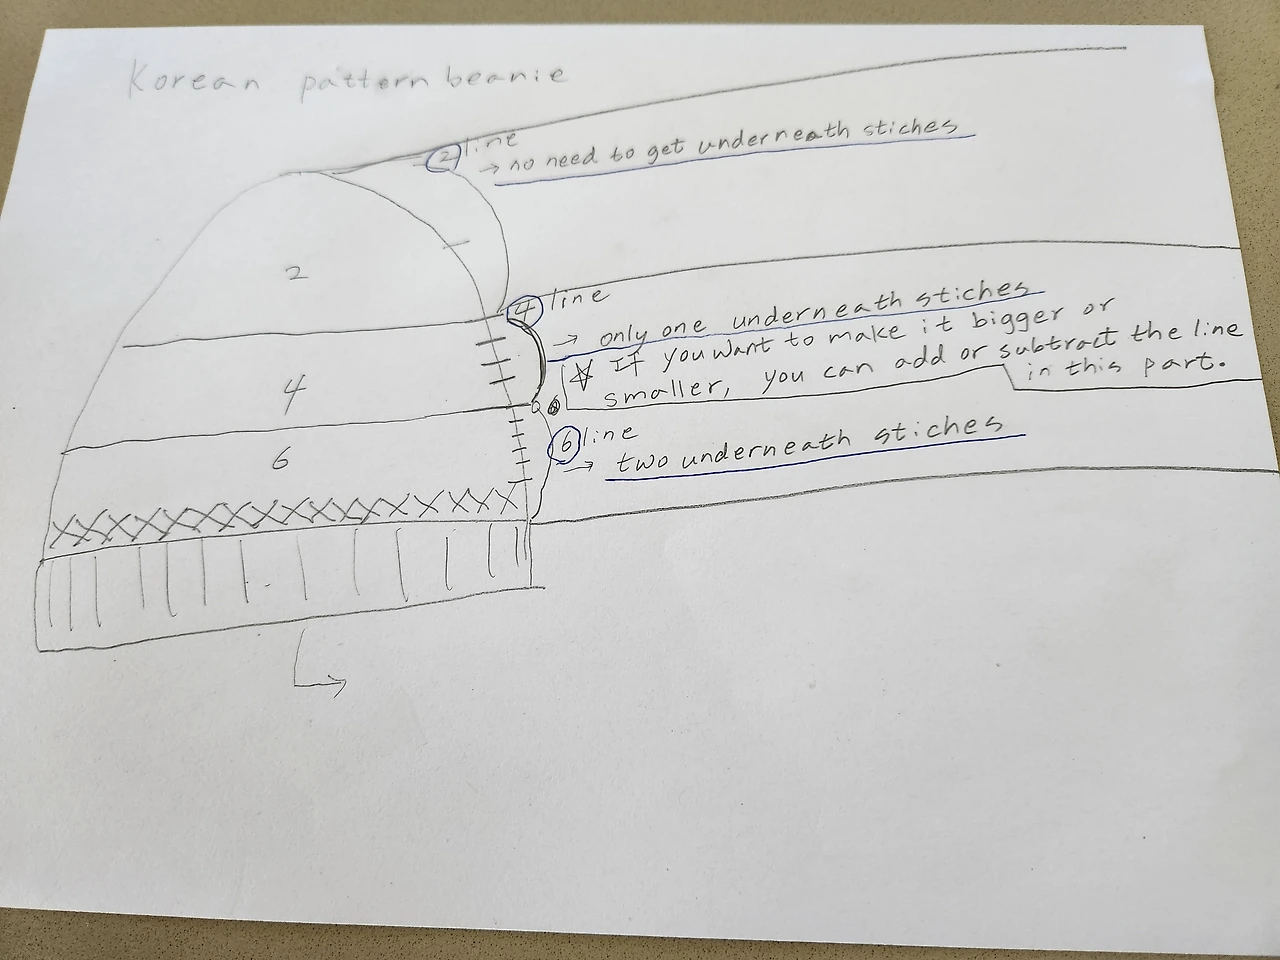 Korean pattern beanie
2 line
→ no need to get underneath stiches
2
4 line
→ only one underneath stiches
☆ If you want to make it bigger or
smaller, you can add or subtract the line
in this part.
4
6 line
→ two underneath stiches
6